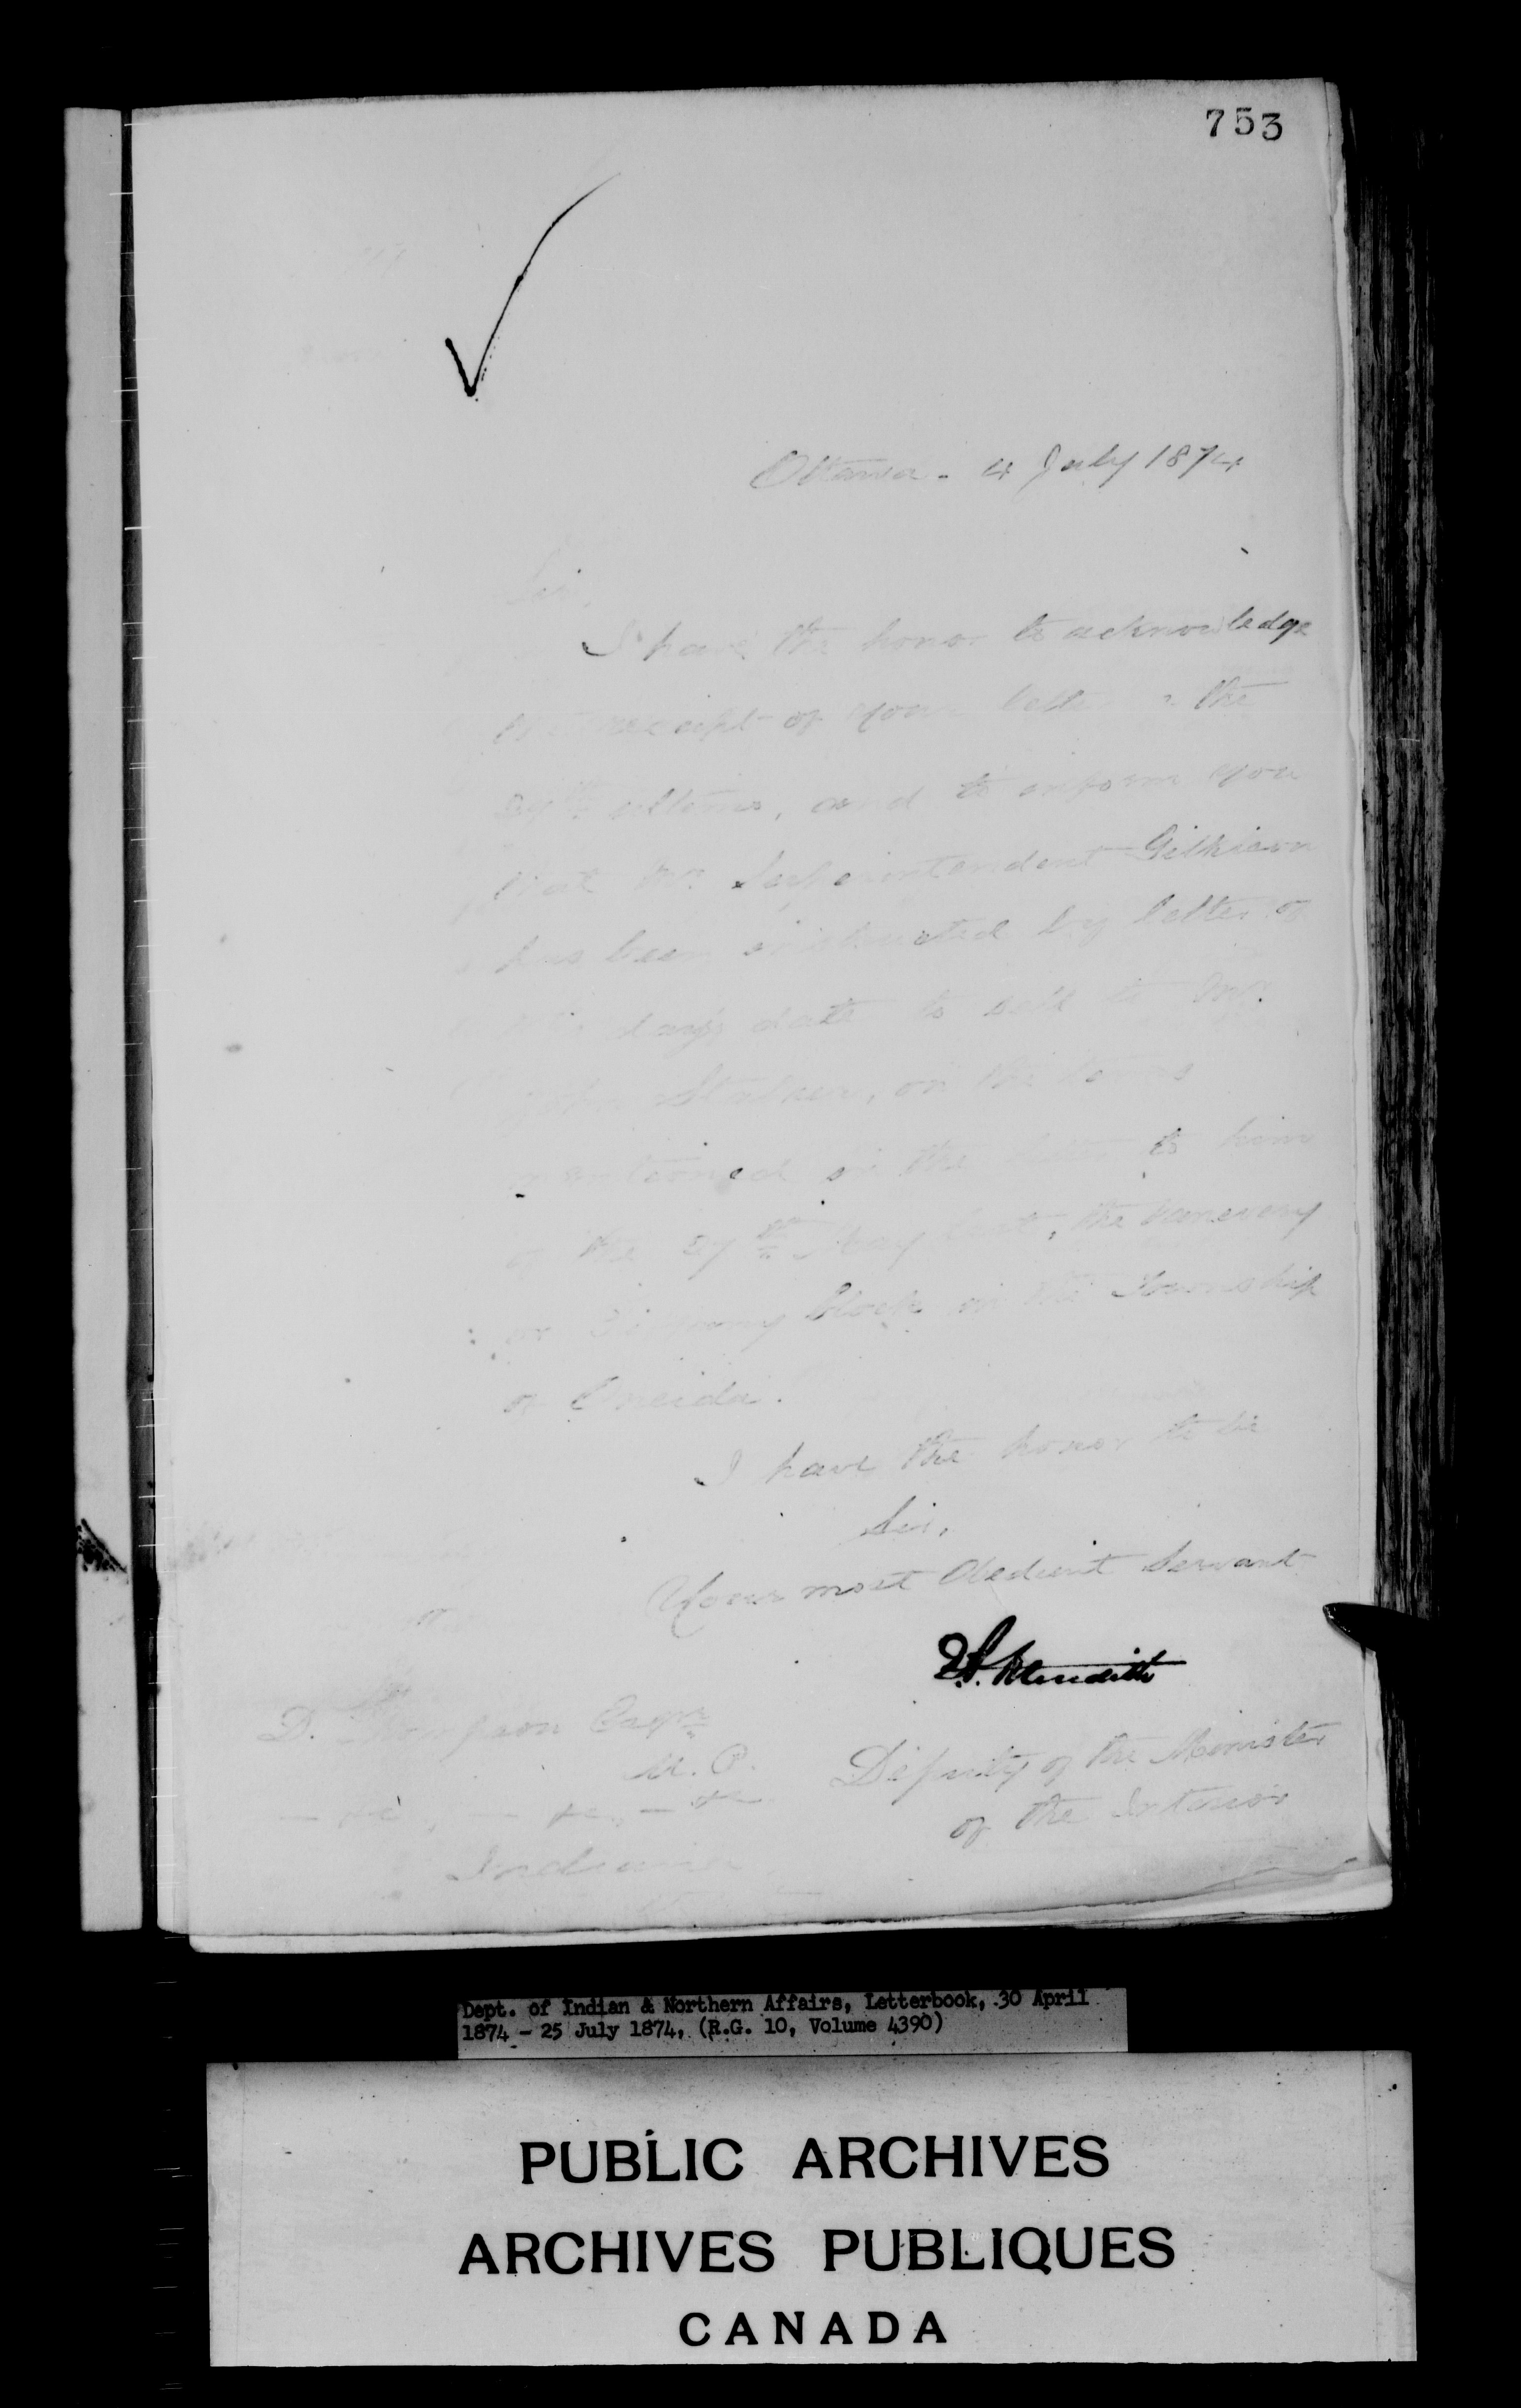 753
Ottawa - 4 July 1874
Sir,
I have the honor to acknowledge
receipt of your letter the
ultimo, and to inform you
that Mr. Superintendent Gilkison
has been instructed by letter of
day's date to sell to Mr.
John Stalker, on the terms
mentioned in the letter to him
of the 27th May last, the
or block in the Township
of Oneida.
I have the honor to be
Sir,
Your most Obedient Servant
Meredith
D. Thompson Esqre
M.P.
Deputy of the Minister
of the Interior
&c, &c, &c
Indiana
Dept. of Indian & Northern Affairs, Letterbook, 30 April
1874 - 25 July 1874, (R.G. 10, Volume 4390)
PUBLIC ARCHIVES
ARCHIVES PUBLIQUES
CANADA